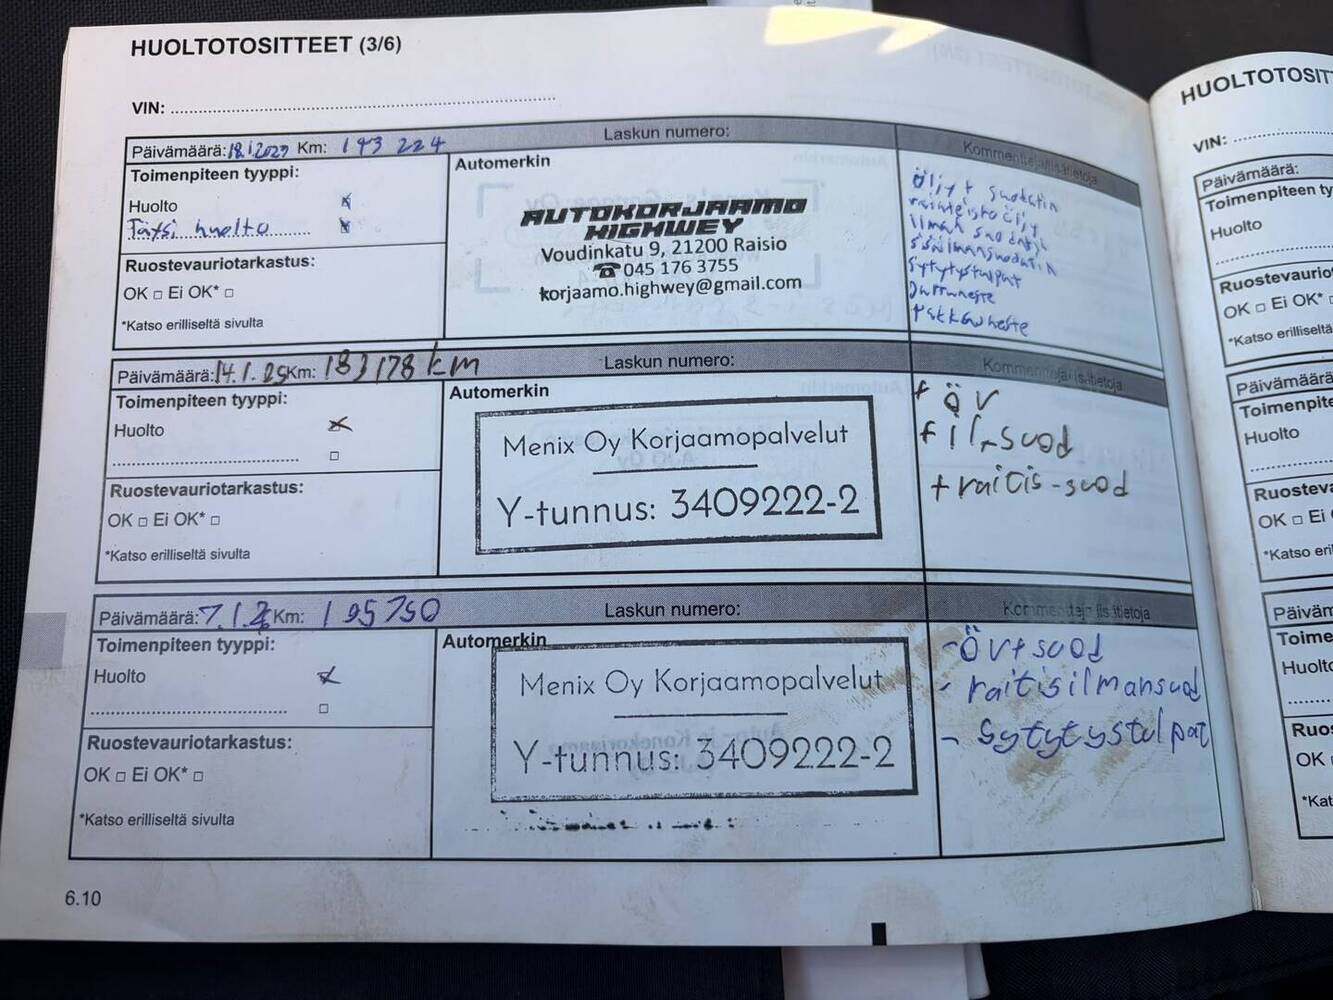 HUOLTOTOSITTEET (3/6)
VIN:
Päivämäärä: 18.1.2023 Km: 193 224 Laskun numero: Kommentteja/lisätietoja
Toimenpiteen tyyppi:
Huolto
Täysi huolto
Ruostevauriotarkastus:
OK □ Ei OK* □
*Katso erilliseltä sivulta
Automerkin
AUTOKORJAAMO
HIGHWEY
Voudinkatu 9, 21200 Raisio
☎ 045 176 3755
korjaamo.highwey@gmail.com
Öljyt suodatin
raitisilma
ilman suodatin
sisäilmansuodatin
Sytytystulpat
Jarruneste
Päivämäärä: 14.1.25 Km: 183178 km Laskun numero: Kommentteja/lisätietoja
Toimenpiteen tyyppi:
Huolto
□
Ruostevauriotarkastus:
OK □ Ei OK* □
*Katso erilliseltä sivulta
Automerkin
Menix Oy Korjaamopalvelut
Y-tunnus: 3409222-2
+ öv
+ il-suod
+ raitis-suod
Päivämäärä: 7.1.26 Km: 195750 Laskun numero: Kommentteja/lisätietoja
Toimenpiteen tyyppi:
Huolto
□
Ruostevauriotarkastus:
OK □ Ei OK* □
*Katso erilliseltä sivulta
Automerkin
Menix Oy Korjaamopalvelut
Y-tunnus: 3409222-2
- Öv+suod
- raitisilmansuod
- Sytytystulpat
6.10
HUOLTOTOSIT
VIN:
Päivämäärä:
Toimenpiteen ty
Huolto
Ruostevaurio
OK □ Ei OK* □
*Katso erilliseltä
Päivämäärä
Toimenpite
Huolto
Ruosteva
OK □ Ei
*Katso eri
Päiväm
Toime
Huolt
Ruo
OK
*Kat